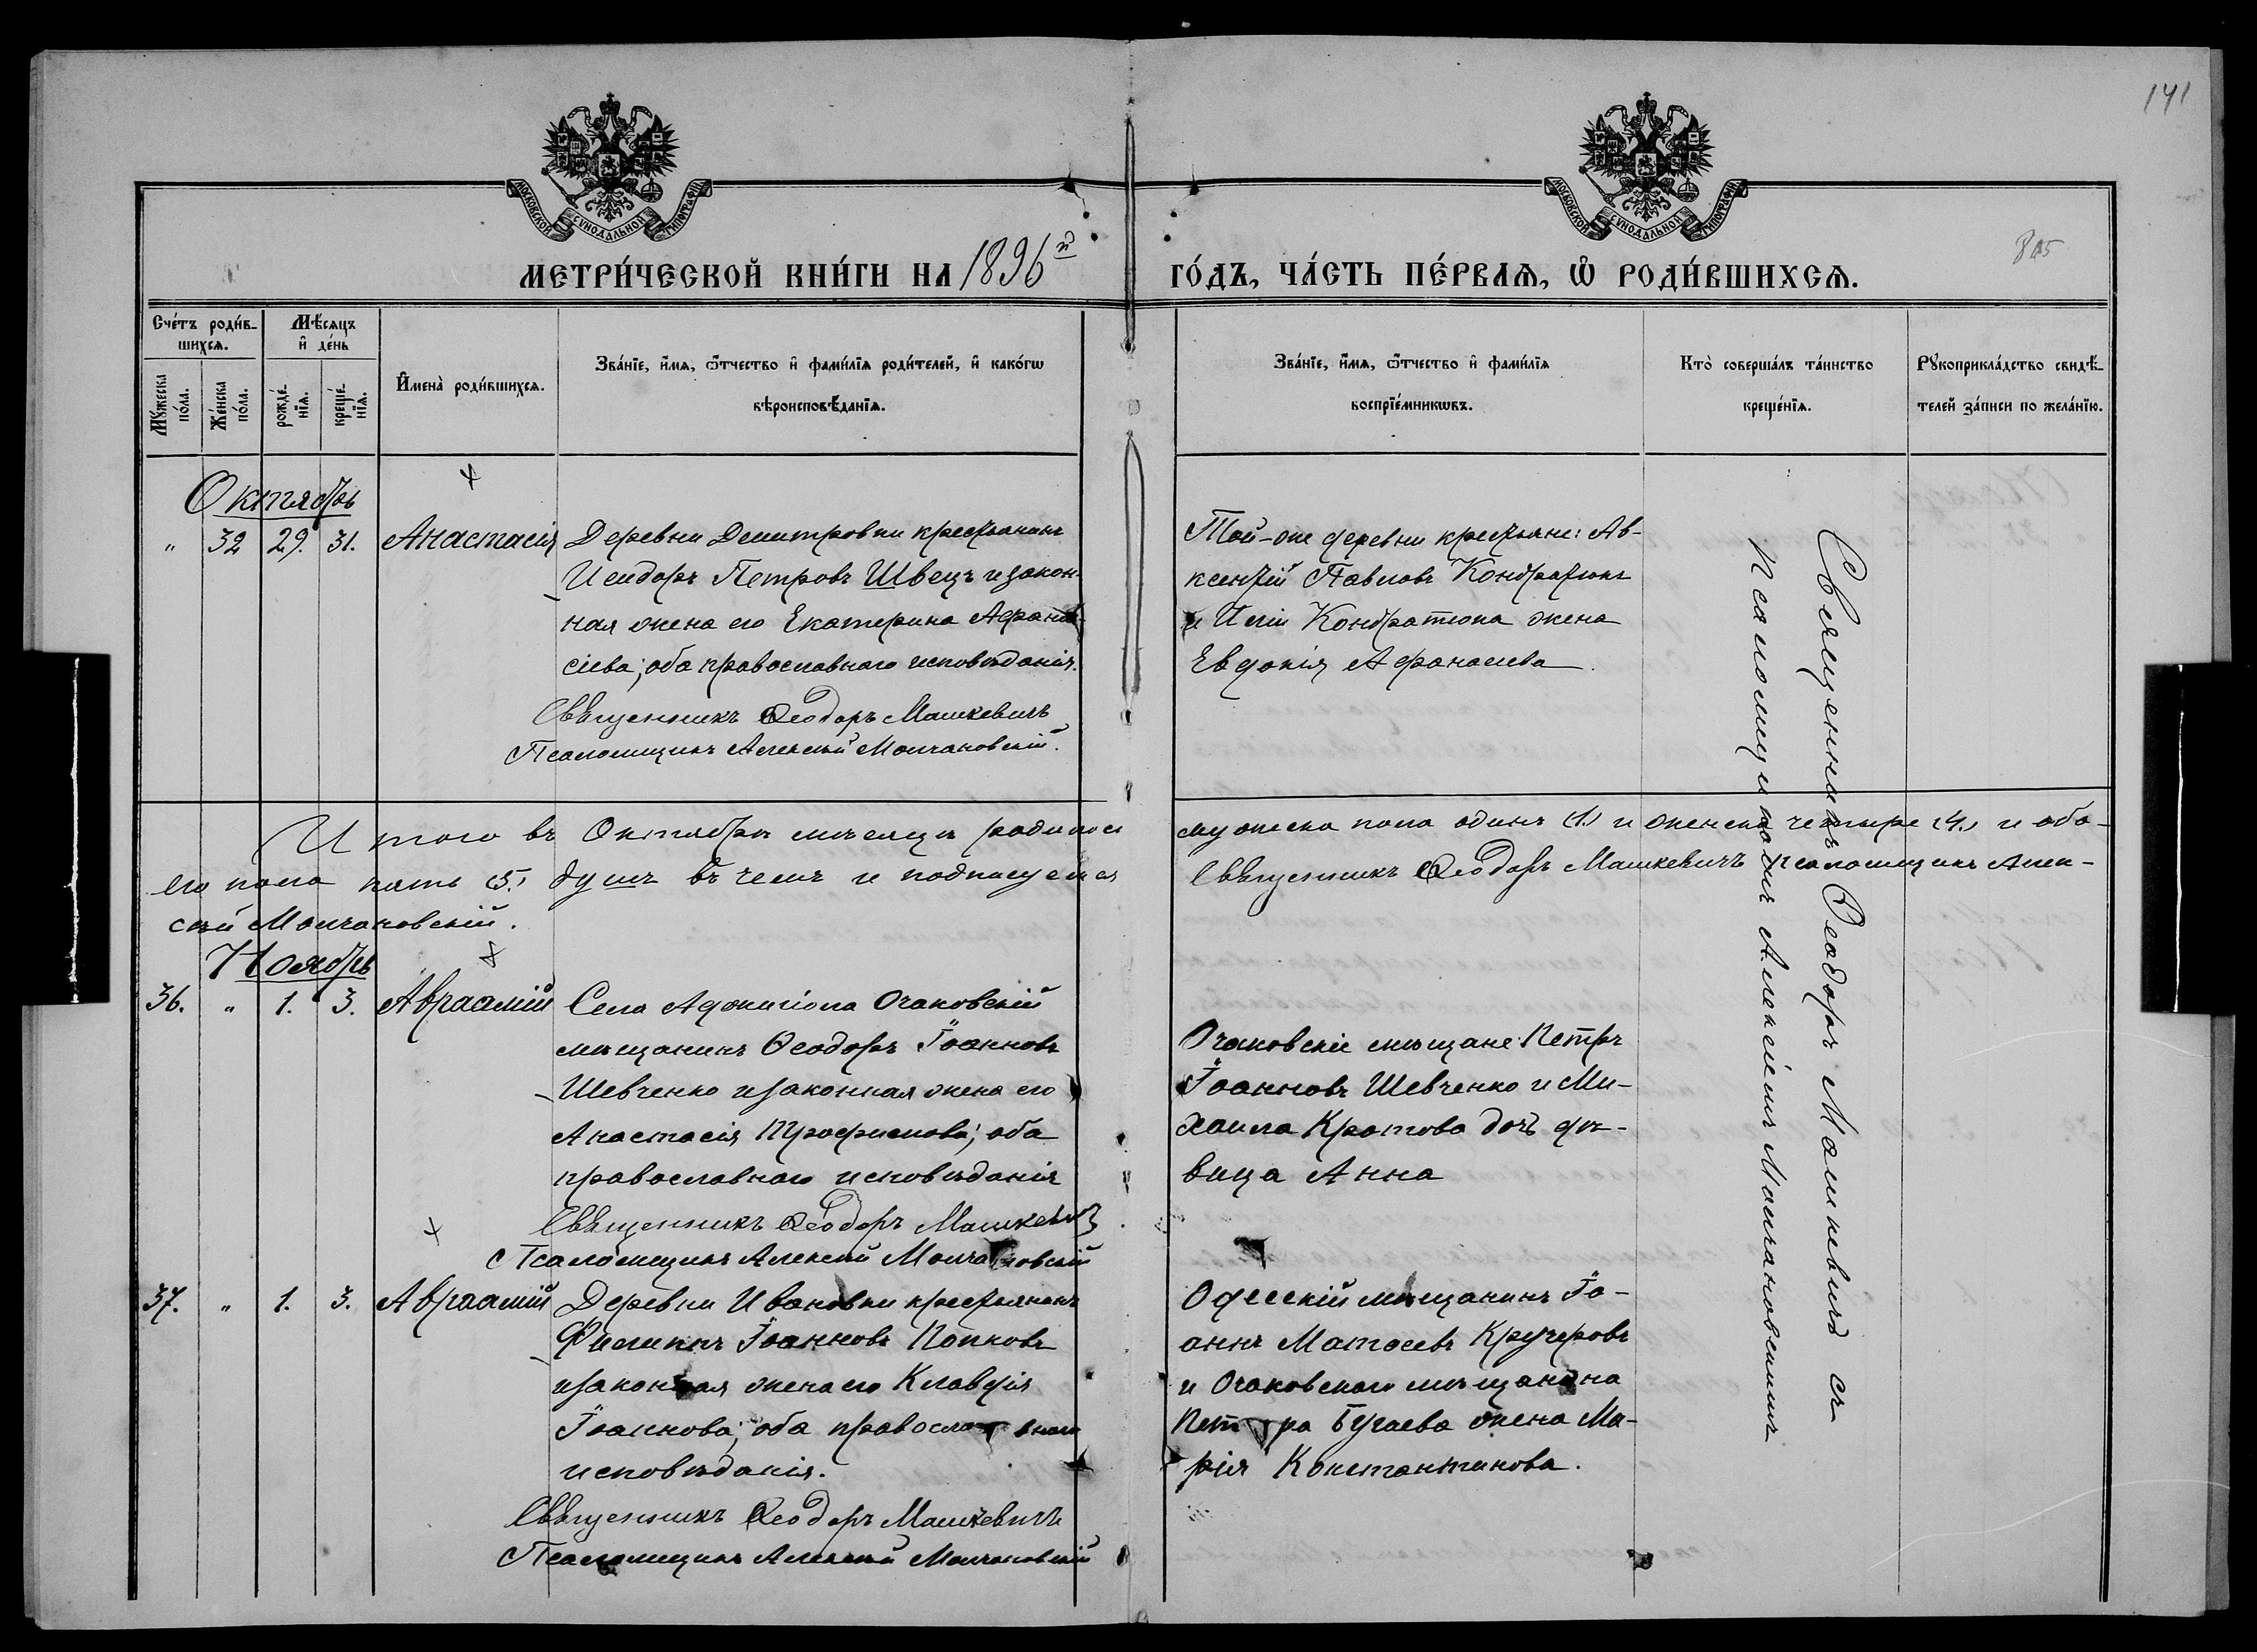 141
МОСКОВСКОЙ СУНОДАЛЬНОЙ ТИПОГРАФІИ
МОСКОВСКОЙ СУНОДАЛЬНОЙ ТИПОГРАФІИ
МЕТРИ́ЧЕСКОЙ КНИ́ГИ НА 1896й ГО́ДЪ, ЧА́СТЬ ПЕ́РВАѦ, Ѡ҆ РОДИ́ВШИХСѦ.
Сче́тъ роди́в-
шихсѧ.
Мѹ́жеска
по́ла.
Же́нска
по́ла.
Мѣ́сѧцъ
и҆ де́нь
рожде́-
нїѧ.
креще́-
нїѧ.
И҆мена̀ роди́вшихсѧ.
Зва́нїе, и҆́мѧ, ѻ҆́тчество и҆ фами́лїѧ роди́телей, и҆ како́гѡ
вѣроисповѣ́данїѧ.
Зва́нїе, и҆́мѧ, ѻ҆́тчество и҆ фами́лїѧ
воспрїе́мникѡвъ.
Кто̀ соверша́лъ та́инство
креще́нїѧ.
Рѹкоприкла́дство свидѣ́-
телей за́писи по жела́нїю.
Октябрь
" 32 29. 31. Анастасія
Деревни Димитровки крестьянинъ
Исидоръ Петровъ Швецъ и закон-
ная жена его Екатерина Афана-
сіева; оба православнаго исповѣданія.
Священникъ Ѳеодоръ Машкевичъ
Псаломщикъ Алексѣй Молчановскій.
Той-же деревни крестьяне: Ав-
ксентій Павловъ Кондратюкъ
и Иліи Кондратюка жена
Евдокія Афанасіева.
Итого въ Октябрѣ мѣсяцѣ родилось мужеска пола одинъ (1.) и женска четыре (4.) и обо-
его пола пять (5.) душъ въ чемъ и подписуемся Священникъ Ѳеодоръ Машкевичъ Псаломщикъ Алек-
сѣй Молчановскій.
Ноябрь
36. " 1. 3. Авраамій
Села Аджигіола Очаковскій
мѣщанинъ Ѳеодоръ Іоанновъ
Шевченко и законная жена его
Анастасія Трофимова; оба
православнаго исповѣданія
Священникъ Ѳеодоръ Машкевичъ
Псаломщикъ Алексѣй Молчановскій
Очаковскіе мѣщане: Петръ
Іоанновъ Шевченко и Ми-
хаила Кротова дочь дѣ-
вица Анна
37. " 1. 3. Авраамій
Деревни Ивановки крестьянинъ
Филиппъ Іоанновъ Попковъ
и законная жена его Клавдія
Іоаннова; оба православнаго
исповѣданія.
Священникъ Ѳеодоръ Машкевичъ
Псаломщикъ Алексѣй Молчановскій
Одесскій мѣщанинъ Іо-
аннъ Матѳеевъ Кручеровъ
и Очаковскаго мѣщанина
Петра Бугаева жена Ма-
рія Константинова.
Священникъ Ѳеодоръ Машкевичъ съ
Псаломщикомъ Алексѣемъ Молчановскимъ